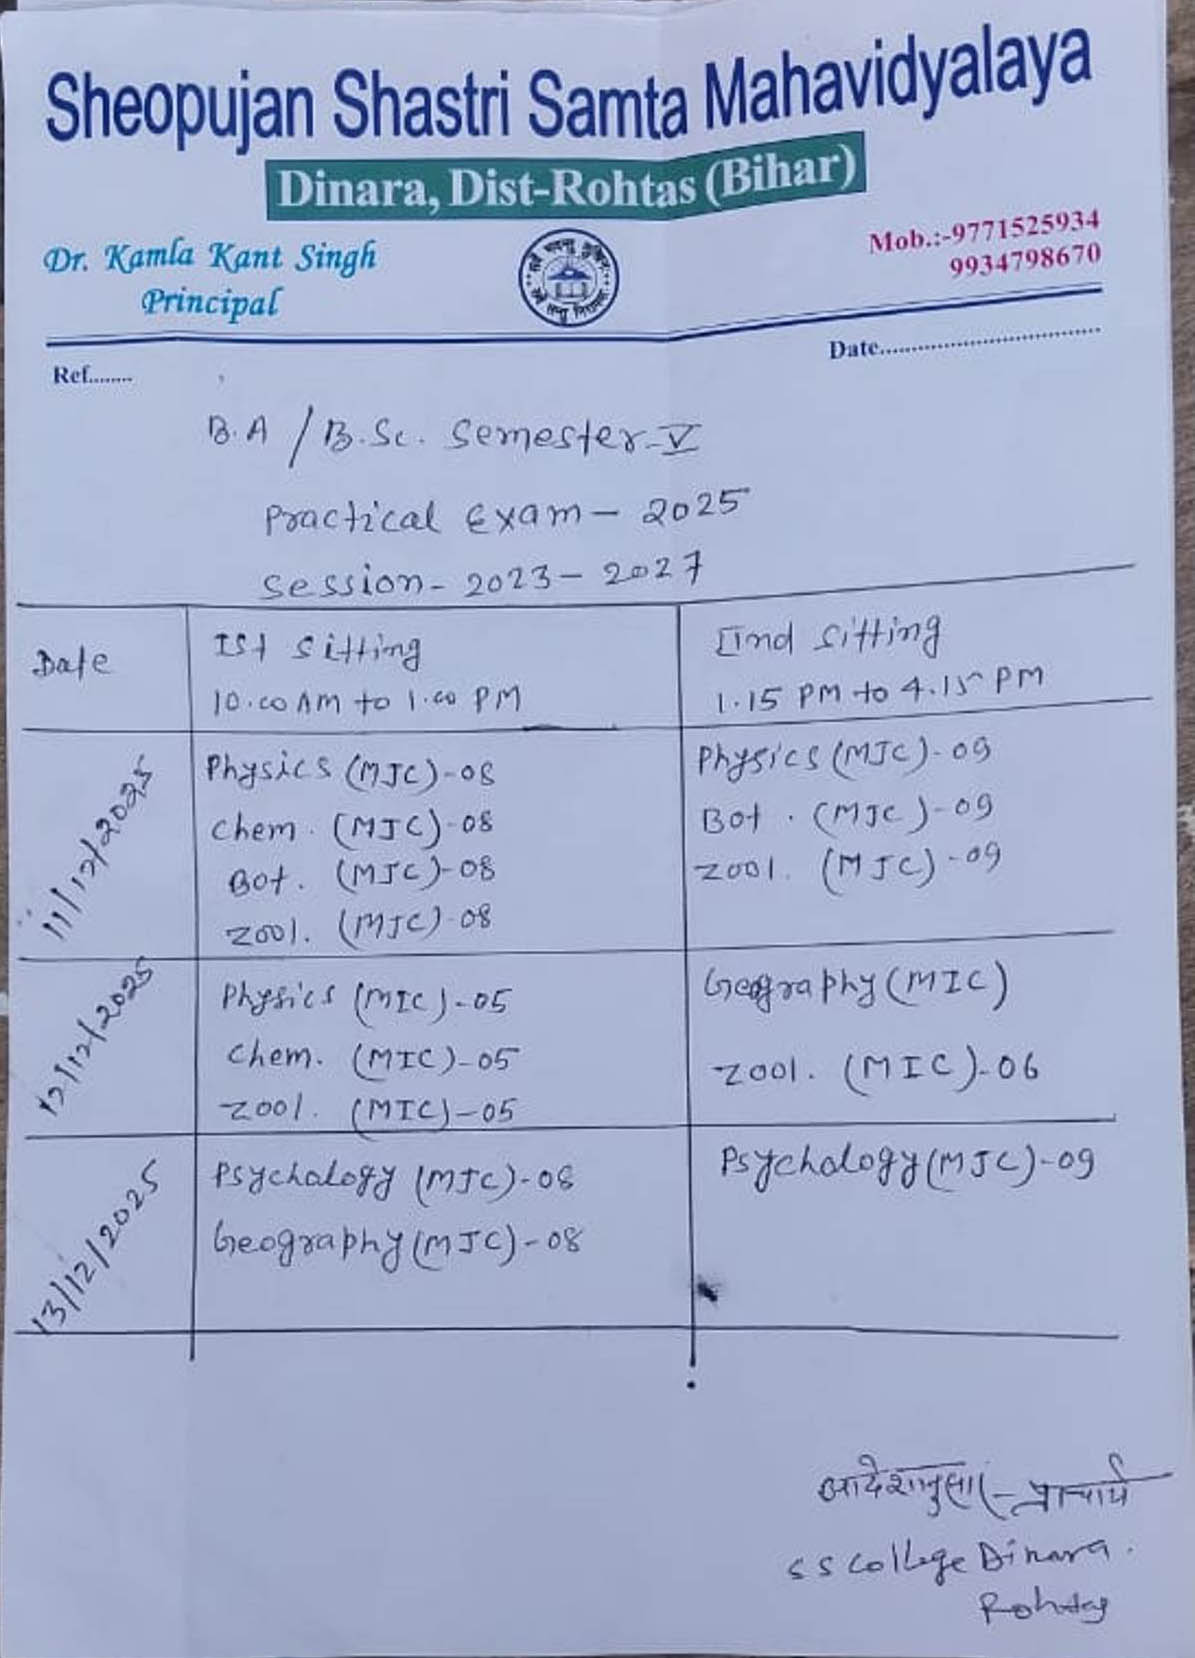 Sheopujan Shastri Samta Mahavidyalaya
Dinara, Dist-Rohtas (Bihar)
Dr. Kamla Kant Singh
Principal
Mob.:-9771525934
9934798670
Ref........
Date................................
B.A / B.Sc. Semester-V
Practical Exam - 2025
Session - 2023 - 2027
Date
Ist Sitting
10.00 AM to 1.00 PM
IInd Sitting
1.15 PM to 4.15 PM
11/12/2025
Physics (MJC)-08
Chem. (MJC)-08
Bot. (MJC)-08
Zool. (MJC)-08
Physics (MJC)-09
Bot. (MJC)-09
Zool. (MJC)-09
12/12/2025
Physics (MIC)-05
Chem. (MIC)-05
Zool. (MIC)-05
Geography (MIC)
Zool. (MIC)-06
13/12/2025
Psychology (MJC)-08
Geography (MJC)-08
Psychology (MJC)-09
आदेशानुसार - प्राचार्य
S S College Dinara.
Rohtas